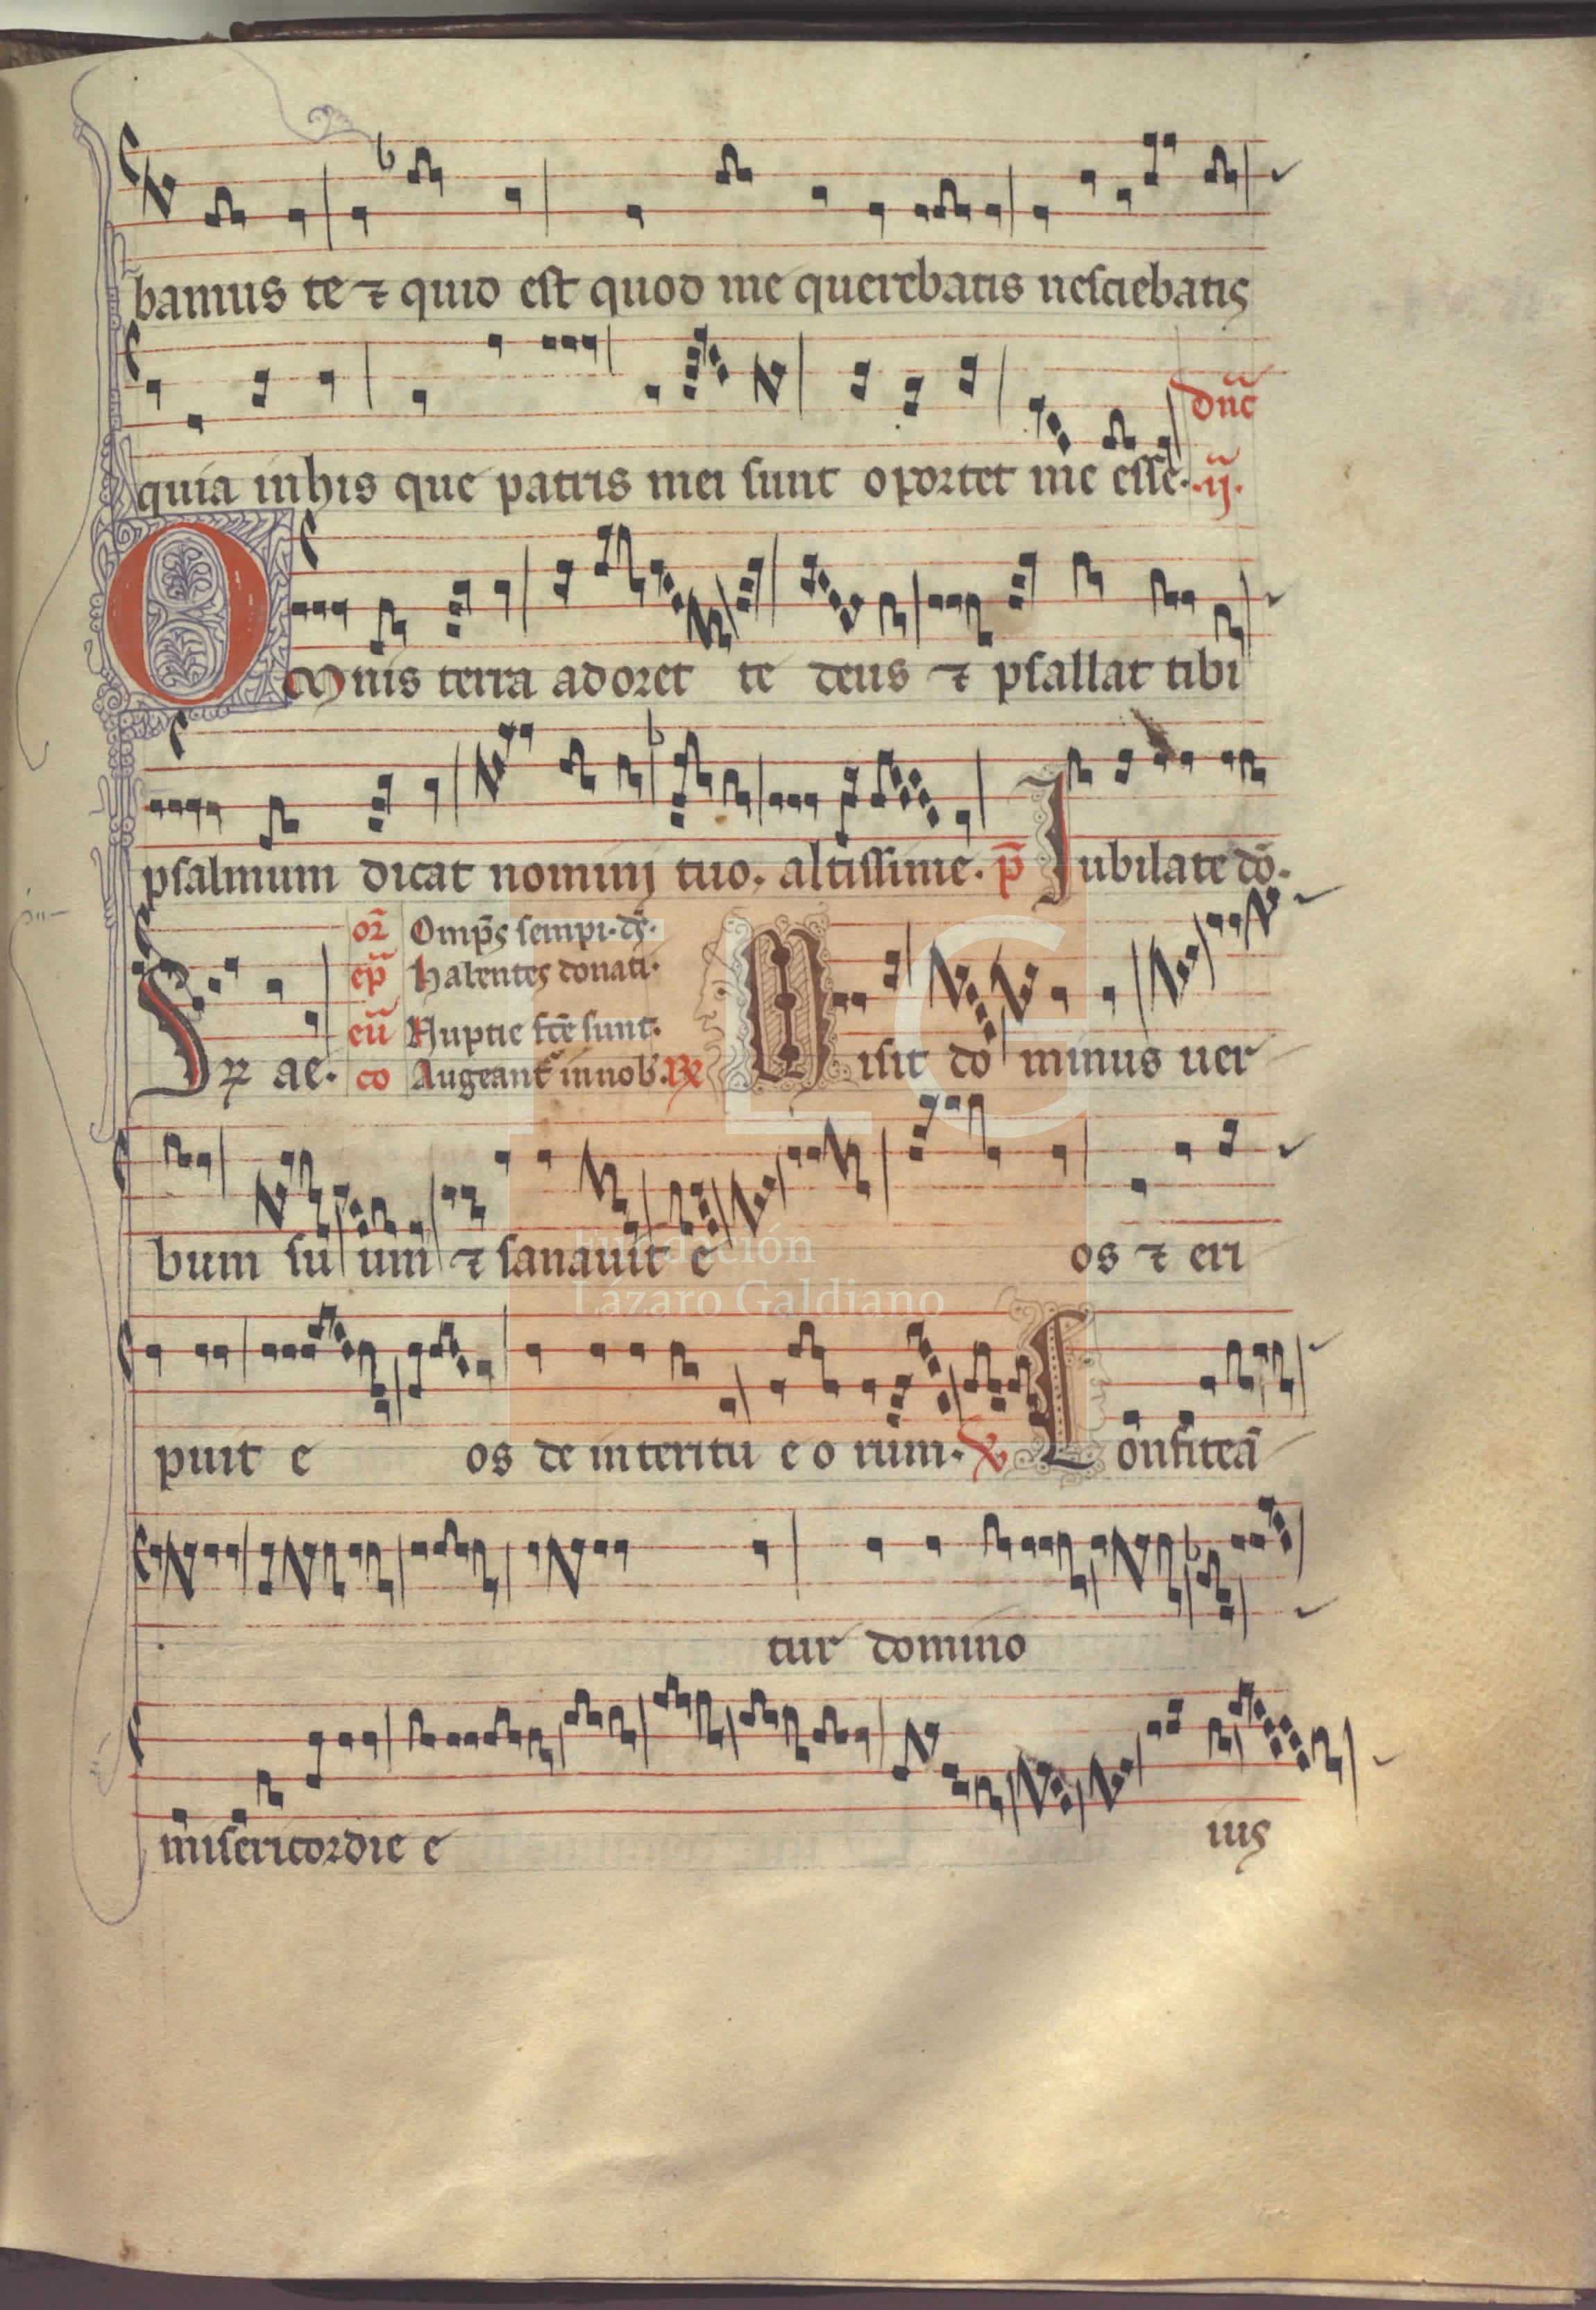 bamus te ⁊ quid est quod me querebatis nesciebatis
dn̄c
quia in his que patris mei sunt oportet me esse. .ij.
Omnis terra adoret te deus ⁊ psallat tibi
psalmum dicat nomini tuo. altissime. p̄ Iubilate dō.
or̄ Omp̄s sempi. ds̄.
ep̄ Habentes donati.
eū Nuptie fcē sunt.
ae. co Augeant̄ in nob. R̄ Misit dominus uer
bum suum ⁊ sanauit e os ⁊ eri
puit e os de interitu eorum. ℣ Confiteā
tur domino
misericordie e ius
Fundación
Lázaro Galdiano